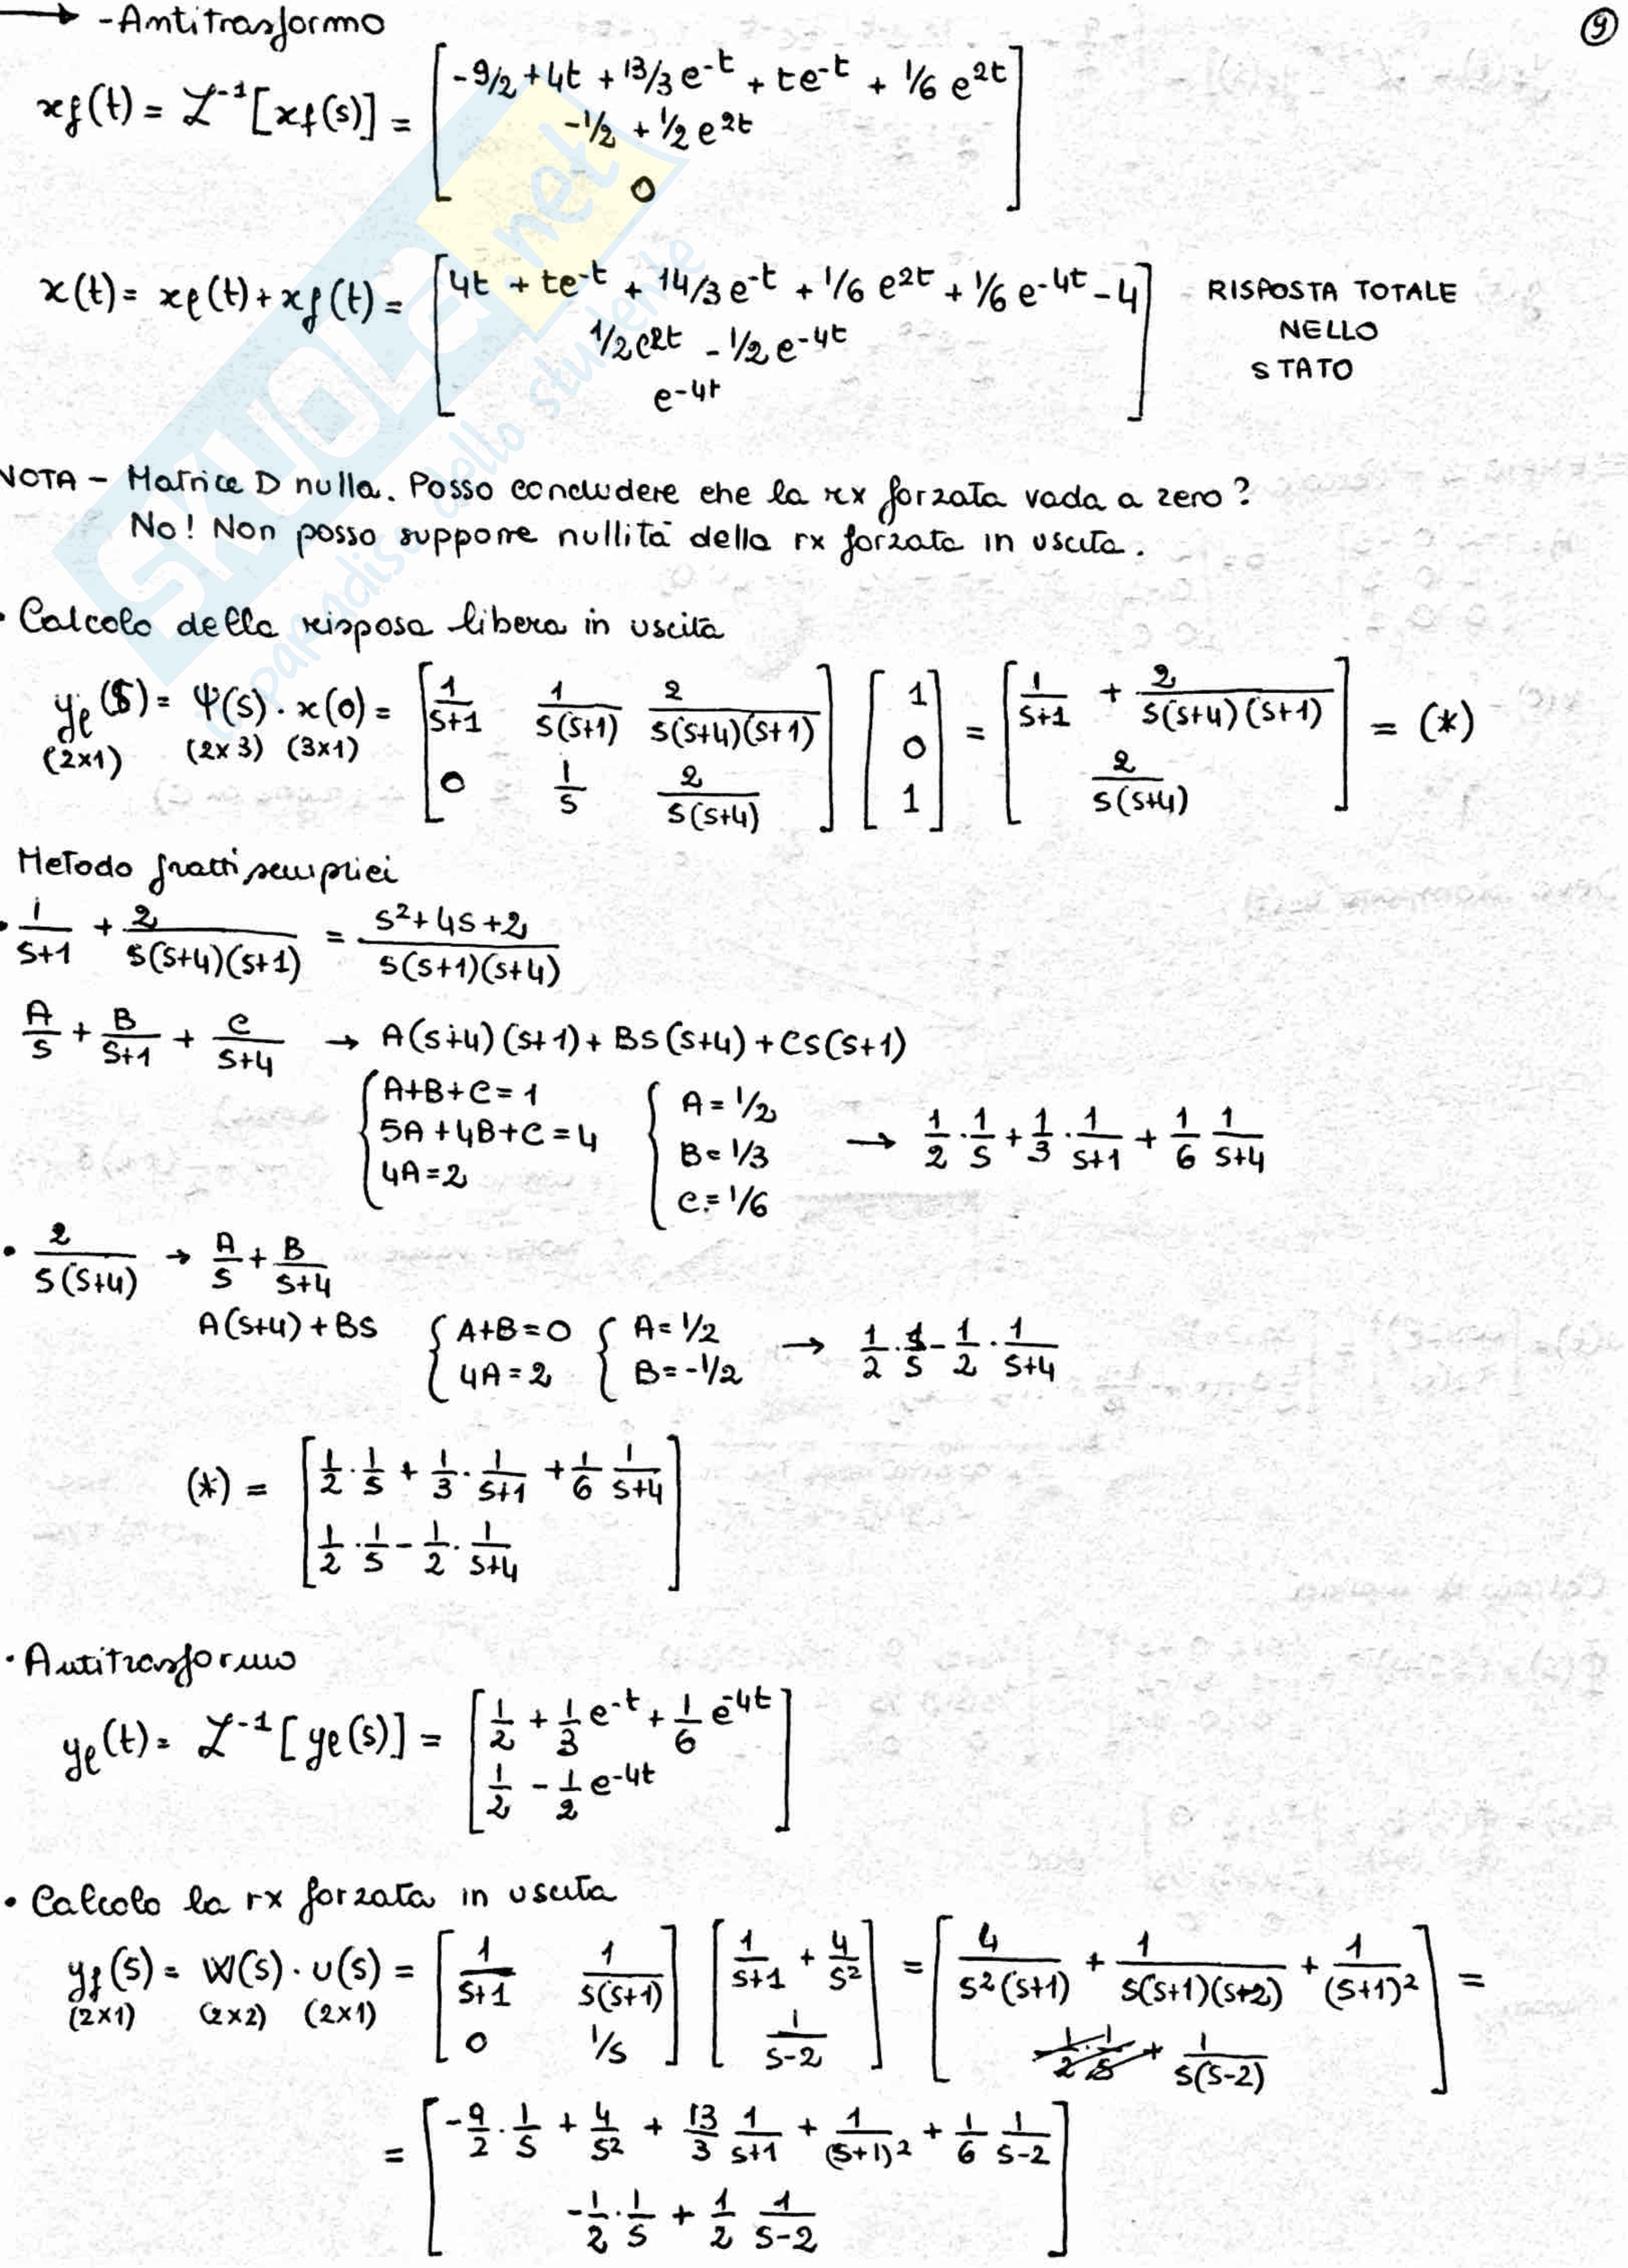 → - Antitrasformo
⑨
xf(t) = ℒ⁻¹[xf(s)] = [ -9/2 + 4t + 13/3 e^-t + te^-t + 1/6 e^2t ; -1/2 + 1/2 e^2t ; 0 ]
x(t) = xℓ(t) + xf(t) = [ 4t + te^-t + 14/3 e^-t + 1/6 e^2t + 1/6 e^-4t - 4 ; 1/2 e^2t - 1/2 e^-4t ; e^-4t ] RISPOSTA TOTALE
NELLO
STATO
NOTA - Matrice D nulla. Posso concludere che la rx forzata vada a zero?
No! Non posso supporre nullità della rx forzata in uscita.
• Calcolo della risposa libera in uscita
yℓ(s) = Ψ(s) · x(0) = [ 1/(s+1) 1/(s(s+1)) 2/(s(s+4)(s+1)) ; 0 1/s 2/(s(s+4)) ] [ 1 ; 0 ; 1 ] = [ 1/(s+1) + 2/(s(s+4)(s+1)) ; 2/(s(s+4)) ] = (*)
(2x1) (2x3) (3x1)
Metodo fratti semplici
• 1/(s+1) + 2/(s(s+4)(s+1)) = (s²+4s+2)/(s(s+1)(s+4))
A/s + B/(s+1) + C/(s+4) → A(s+4)(s+1) + Bs(s+4) + Cs(s+1)
{ A+B+C=1 ; 5A+4B+C=4 ; 4A=2 { A=1/2 ; B=1/3 ; C=1/6 → 1/2 · 1/s + 1/3 · 1/(s+1) + 1/6 1/(s+4)
• 2/(s(s+4)) → A/s + B/(s+4)
A(s+4) + Bs { A+B=0 ; 4A=2 { A=1/2 ; B=-1/2 → 1/2 · 1/s - 1/2 · 1/(s+4)
(*) = [ 1/2 · 1/s + 1/3 · 1/(s+1) + 1/6 1/(s+4) ; 1/2 · 1/s - 1/2 · 1/(s+4) ]
• Antitrasformo
yℓ(t) = ℒ⁻¹[yℓ(s)] = [ 1/2 + 1/3 e^-t + 1/6 e^-4t ; 1/2 - 1/2 e^-4t ]
• Calcolo la rx forzata in uscita
yf(s) = W(s) · u(s) = [ 1/(s+1) 1/(s(s+1)) ; 0 1/s ] [ 1/(s+1) + 4/s² ; 1/(s-2) ] = [ 4/(s²(s+1)) + 1/(s(s+1)(s+2)) + 1/(s+1)² ; 1/(s(s-2)) ] =
(2x1) (2x2) (2x1)
= [ -9/2 · 1/s + 4/s² + 13/3 1/(s+1) + 1/(s+1)² + 1/6 1/(s-2) ; -1/2 · 1/s + 1/2 1/(s-2) ]
SKUOLA.net
il paradiso dello studente